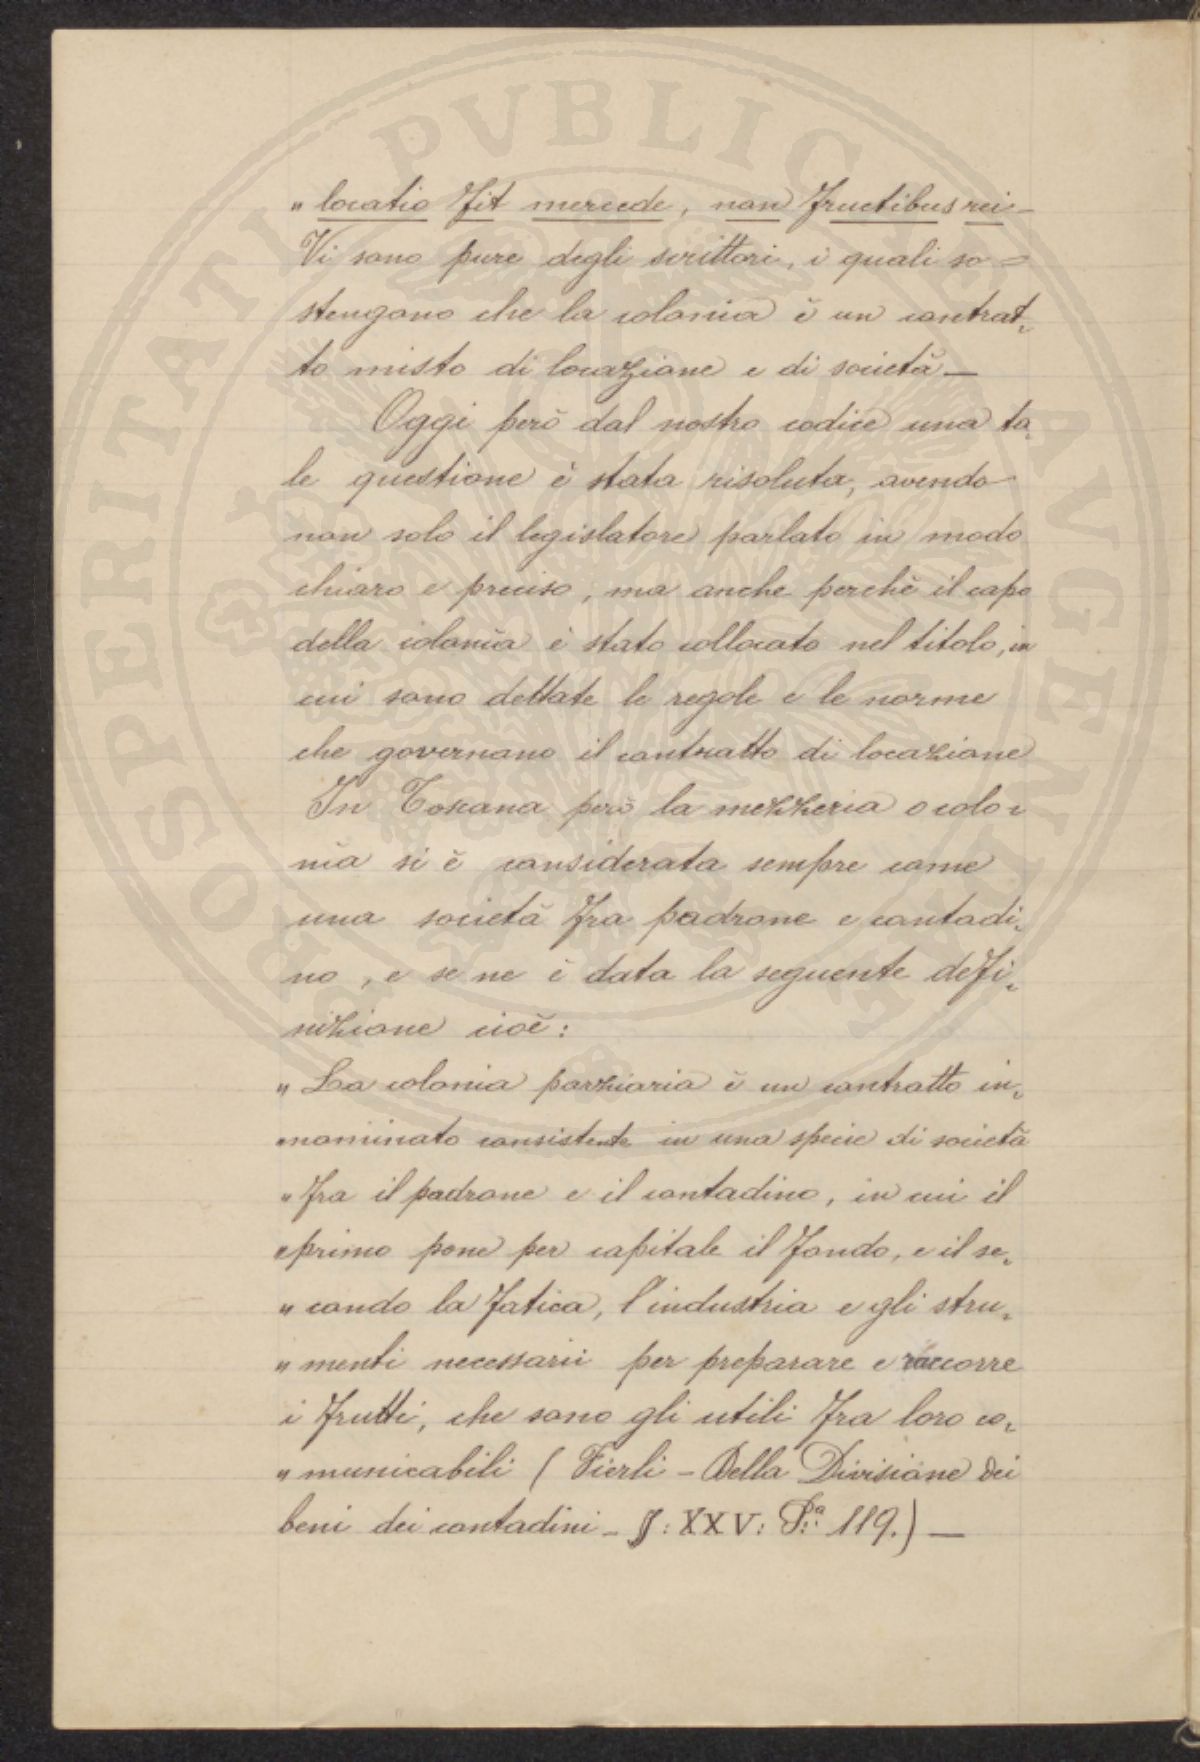 " locatio fit mercede, non fructibus rei –
Vi sono pure degli scrittori, i quali so=
stengono che la colonia è un contrat-
to misto di locazione e di società –
Oggi però dal nostro codice una ta-
le questione è stata risoluta, avendo
non solo il legislatore parlato in modo
chiaro e preciso, ma anche perchè il capo
della colonìa è stato collocato nel titolo, in
cui sono dettate le regole e le norme
che governano il contratto di locazione
In Toscana però la mezzeria o colo-
nìa si è considerata sempre come
una società fra padrone e contadi-
no, e se ne è data la seguente defi-
nizione cioè:
" La colonia parziaria è un contratto in-
" nominato consistente in una specie di società
" fra il padrone e il contadino, in cui il
" primo pone per capitale il fondo, e il se-
" condo la fatica, l'industria e gli stru-
" menti necessarii per preparare e raccorre
i frutti, che sono gli utili fra loro co-
" municabili (Fierli – Della Divisione dei
beni dei contadini – §: XXV: P.ª 119.) –
PROSPERITATI PVBLICAE AVGENDAE